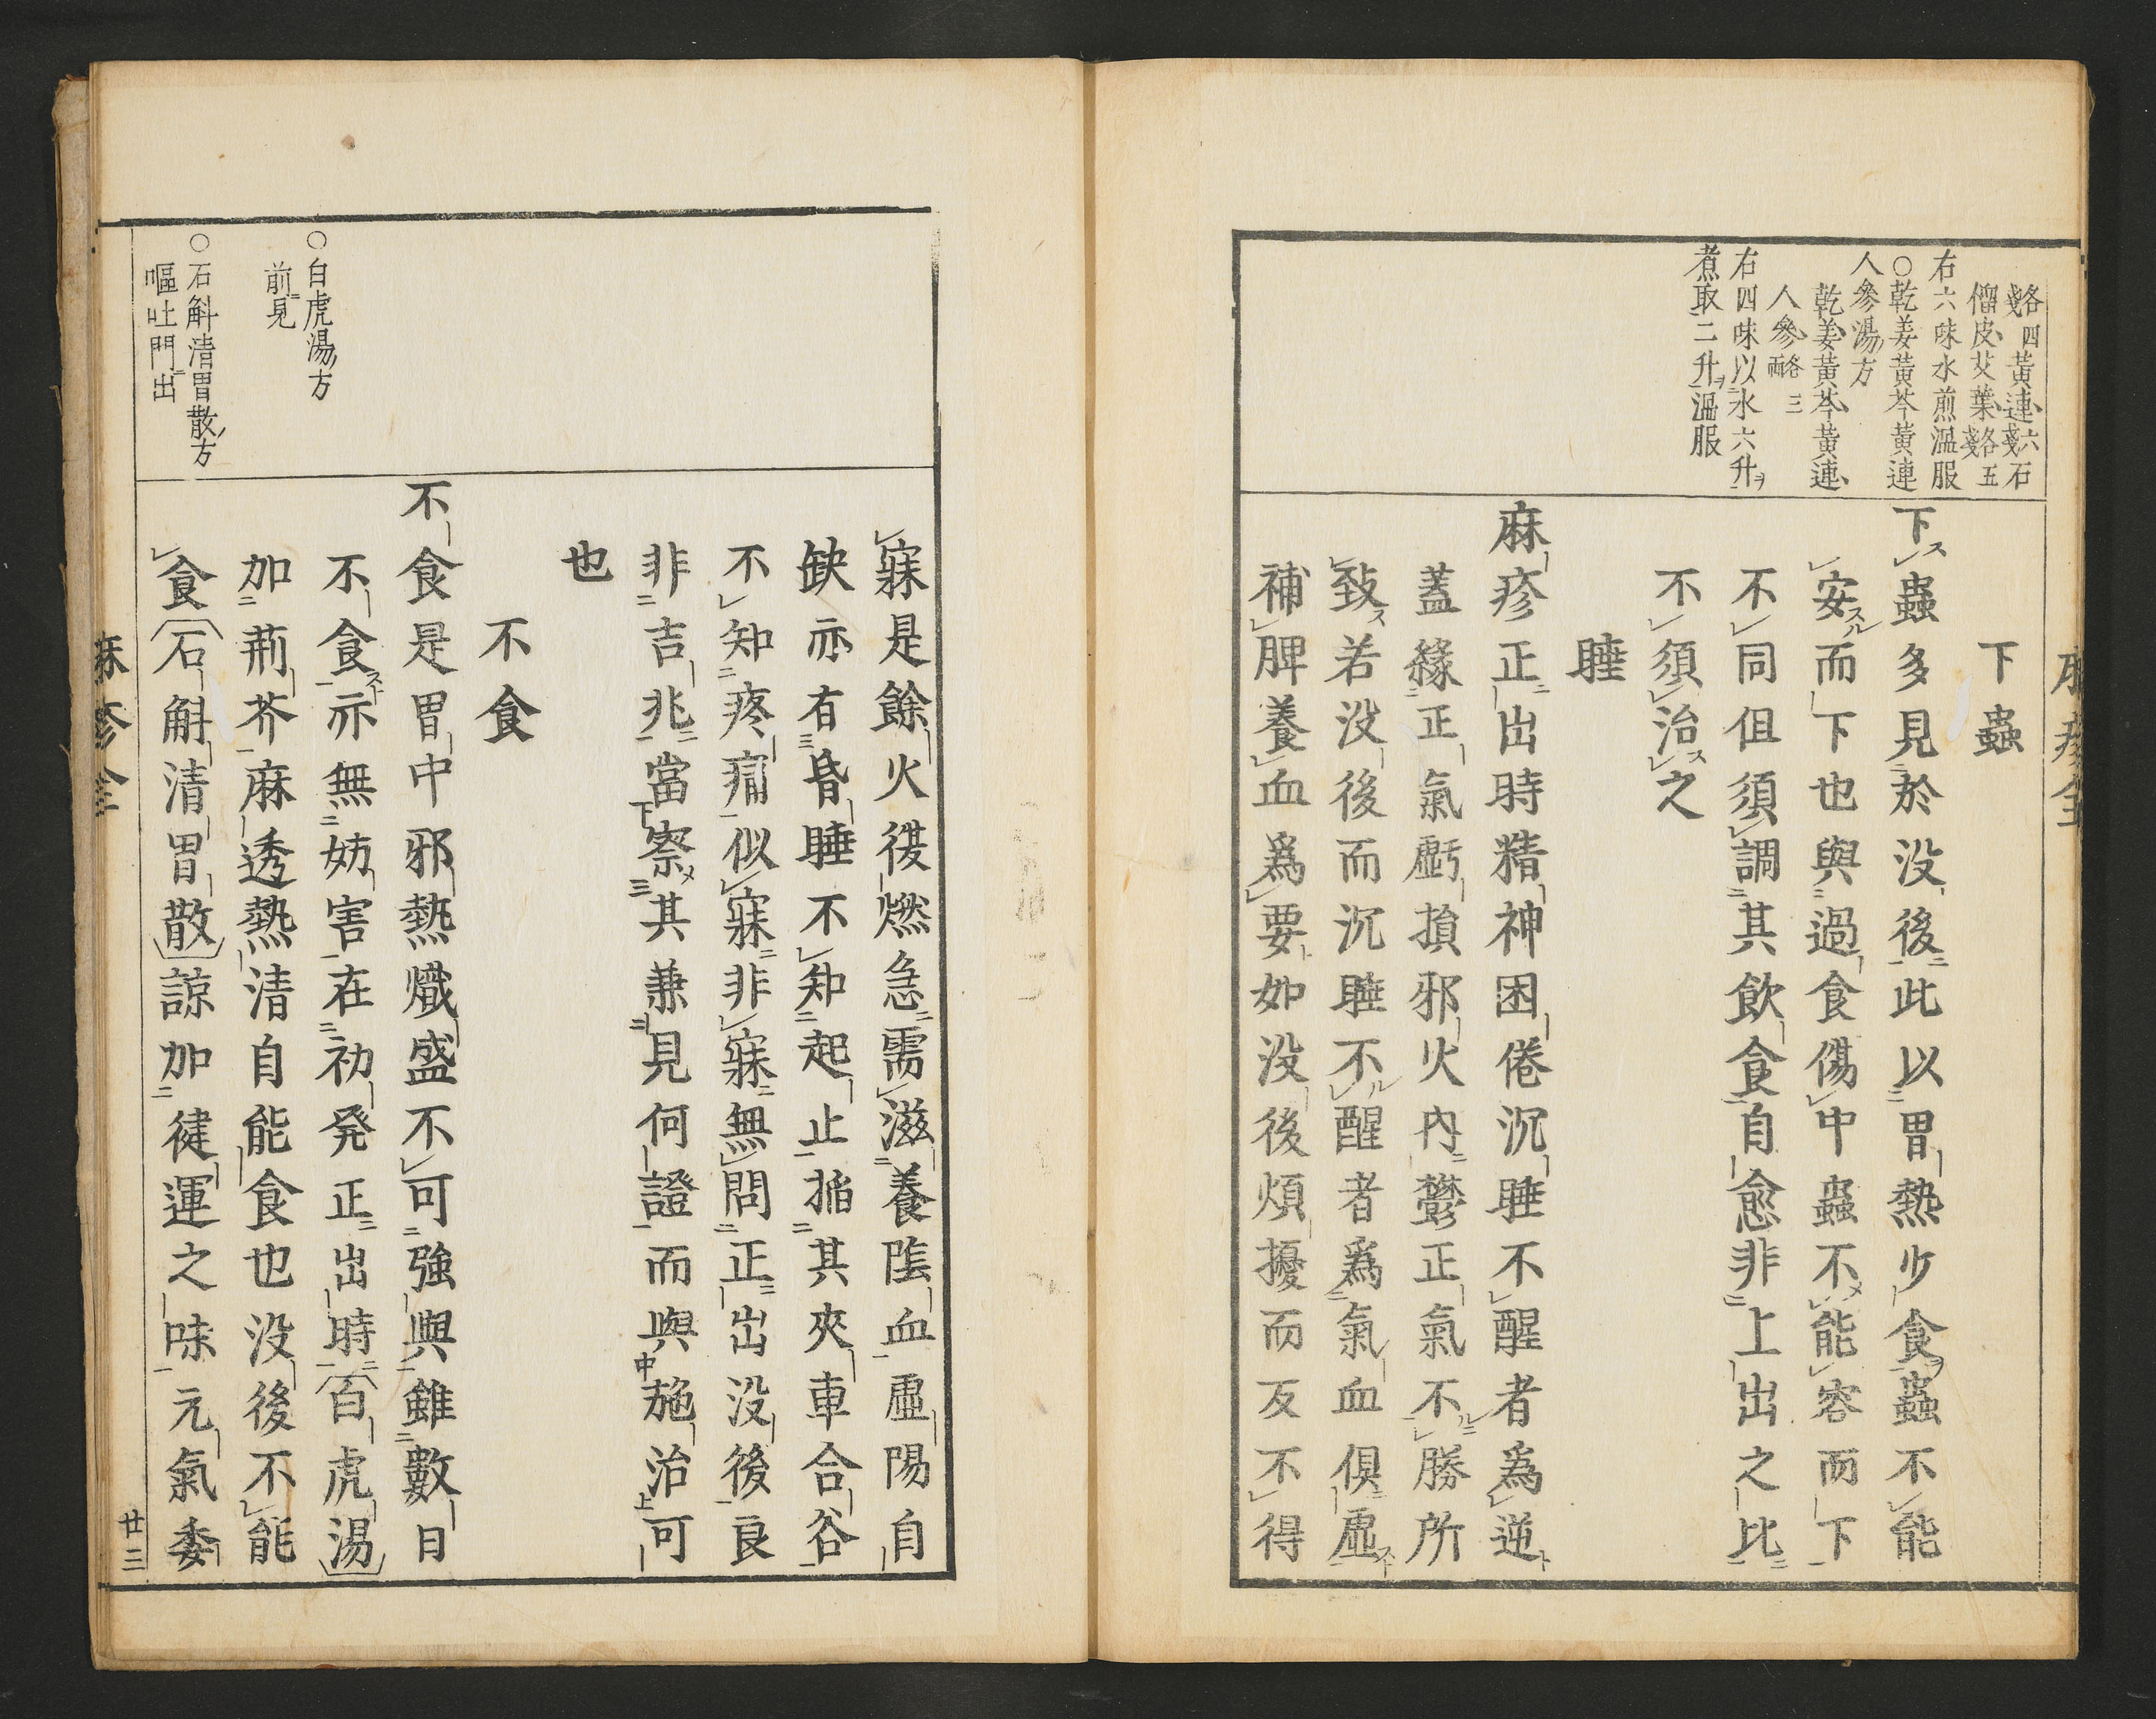 各四戔黃連六戔石
㽞皮艾葉各五戔
右六味水煎溫服
○乾姜黃芩黃連
人參湯方
乾姜黃芩黃連
人參各三兩
右四味以水六升ヲ
煮取二升ヲ溫服
下蟲
下ス蟲多見於没後此以胃熱少食ヲ蟲不能
安スル而下也與過食傷中蟲不メ能容而下
不同但須調其飲食自愈非上出之比
不須治ス之
睡
麻疹正出時精神困倦沉睡不醒者為逆ト
蓋緣正氣虧損邪火內鬱正氣不ル勝所
致ス若没後而沉睡不ル醒者為氣血俱虛ス
補脾養血為要如没後煩擾而反不得
寐是餘火復燃急需滋養陰血虛陽自
缺亦有昏睡不知起止掐其夾車合谷
不知疼痛似寐非寐無問正出没後良
非吉兆當察メ其兼見何證而與施治可
也
不食
不食是胃中邪熱熾盛不可強與雖數日
不食亦無妨害在初発正出時〔百虎湯〕
加荊芥麻透熱清自能食也没後不能
食〔石斛清胃散〕諒加健運之味元氣委
○白虎湯方
前見
○石斛清胃散方
嘔吐門出
麻疹全
廿三